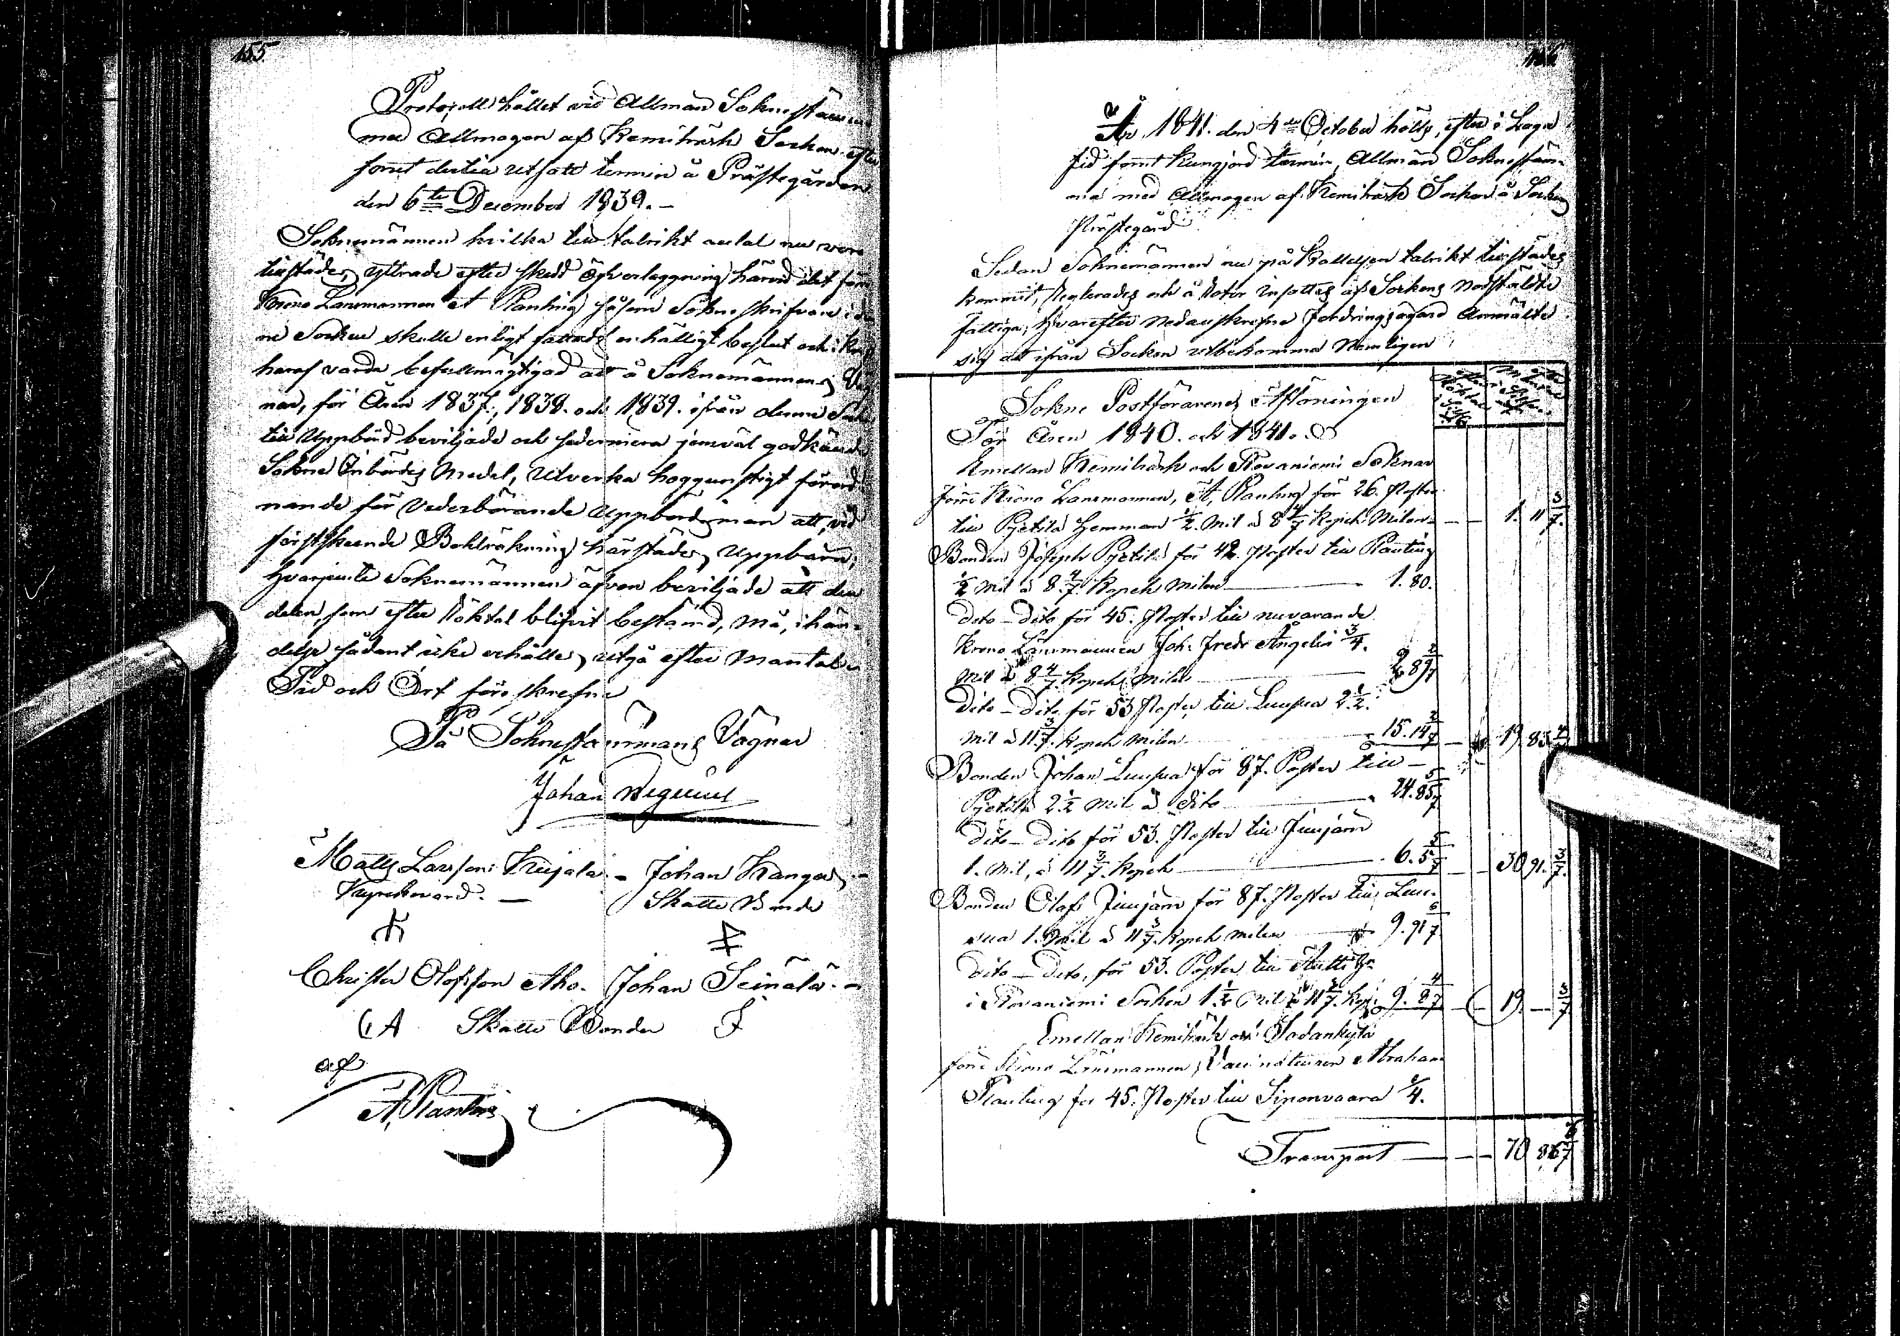 155.
Protocoll hållet vid Allmän Soknestämma
med Allmogen af Kemiträsk Socken efter
förut dertill utsatt termin å Prästegården
den 6te December 1839. –
Soknemännen hvilka till talrikt antal nu voro
tillstädes yttrade efter skedd öfverläggning härvid det förre
Krono Länsmannen A Planting såsom Soknskrifvare i den
ne Socken skulle enligt fattadt enhälligt beslut och i kraft
häraf varda befullmägtigad att å Soknemännens Väg
nar, för Åren 1837, 1838. och 1839. ifrån denne Socken
till Uppbörd beviljade och sedermera jemväl godkände
Sokne Inbördes Medel, utverka höggunstigt förord
nande för Vederbörande Uppbördsman att, vid
förstskeende Bohlräkning härstädes uppbära;
Hvarjemte Soknemännen äfven beviljade att den
delen, som efter Röktal blifvit bestämd, må, i hän-
delse sådant icke erhålles, utgå efter Mantal.
Tid och Ort förskrefne
På Soknestämmans Vägnar
Johan Wegelius
Matts Larsson Kuijala – Johan Kangas –
Kyrckovärd. – Skatte Bonde
Christer Olofsson Aho. Johan Seinälä. –
Skatte Bonder
af
A. Planting
År 1841. den 4de October hölls, efter i Laga
tid förut kungjord termin, Allmän Soknestäm-
ma med Allmogen af Kemiträsk Socken å Sockens
Prästegård
Sedan Soknemännen nu på Kallelsen talrikt tillstädes
kommit,
fälliga, Hvarefter nedanskrefne Fordringsägare Anmälte
sig att ifrån Socken utbekomma Nemligen
Sokne Postförarenes Aflöningen
För Åren 1840. och 1841.
Emellan Kemiträsk och Rovaniemi Soknar
förre Krono Länsmannen, A, Planting för 26. Poster
till Pyetilä Hemman ½. Mil à 8 4/7 Kopek Milen – – 1. 11 3/7.
Bonden Joseph Pyetilä för 42. Poster till Planting
½ Mil à 8 4/7. Kopek Milen – 1.80.
dito – dito för 45. Poster till nuvarande
Krono Länsmannen Joh. Fredr Ångelin 3/4.
Mil à 8 4/7. Kopek Milen – 2 89 2/7
dito – dito för 53 Poster till Luusua 2½.
Mil à 11 3/7. Kopek Milen – 15.14 2/7 – 19. 83 4/7
Bonden Johan Luusua för 87. Poster till –
Pyetilä 2½ Mil à dito – 24.85 5/7
dito – dito för 53. Poster till Juujärvi
1. Mil, à 11 3/7 Kopek – 6.5 5/7 – – 30 91. 3/7.
Bonden Olof Juujärvi för 87. Poster till Luu-
sua 1. Mil à 11 3/7. Kopek Milen – 9.91
dito – dito, för 53. Poster till
i Rovaniemi Socken 1½ Mil à 11 3/7. Kop. 9. 8 4/7 – 19. – 3/7
Emellan Kemiträsk och Sodankylä
förre Krono Länsmannen, Vaccinateuren Abraham
Planting för 45. Poster till Siponvaara
Transport – – – 70 86